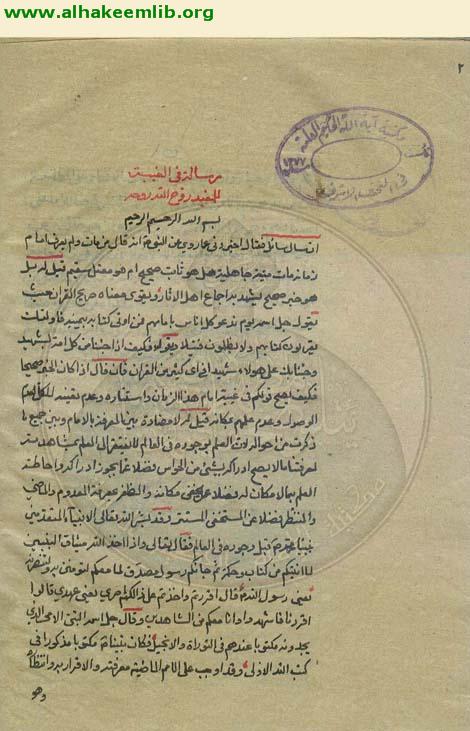 www.alhakeemlib.org
٢
مكتبة آية الله الحكيم العامة
رسالة في الغيبة
للمفيد روح الله روحه
بسم الله الرحمن الرحيم
ان سال سائل فقال اخبروني عما روي عن النبي انه قال من مات ولم يعرف امام
زمانه مات ميتة جاهلية هل هو ثابت صحيح ام هو معتل سقيم قيل له بل
هو خبر صحيح يشهد به اجماع اهل الآثار ويقوى معناه صريح القران حيث
يقول جل اسمه يوم ندعو كل اناس بامامهم فمن اوتي كتابه بيمينه فاولئك
يقرؤن كتابهم ولا يظلمون فتيلا وقوله فكيف اذا جئنا من كل امة بشهيد
وجئنا بك على هؤلاء شهيدا واي كثير من القران فان قال اذا كان الخبر صحيحا
فكيف يصح قولكم في غيبة امام هذا الزمان واستتاره وعدم
الوصول وعدم علم مكانه قيل له لا مضادة بين المعرفة بالامام وبين جميع ما
ذكرت من احواله لان العلم بوجوده في العالم لا يفتقر الى العلم بمشاهدته
لمعرفتنا ما لا يصح ادراكه بشئ من الحواس فضلا عما يجوز ادراكه واحاطة
العلم بما لا مكان له فضلا عمن يخفى مكانه والظفر بمعرفة المعدوم والماضي
والمنتظر فضلا عن المستخفي المستتر وقد بشر الله تعالى الانبياء المتقدمين
بنبينا محمد قبل وجوده في العالم فقال تعالى واذ اخذ الله ميثاق النبيين
لما اتيتكم من كتاب وحكمة ثم جائكم رسول مصدق لما معكم لتؤمنن به ولتنصرنه
يعني رسول الله قال اقررتم واخذتم على ذلكم اصري يعني عهدي قالوا
اقررنا قال فاشهدوا وانا معكم من الشاهدين وقال جل اسمه النبي الامي الذي
يجدونه مكتوبا عندهم في التوراة والانجيل فكان نبينا مكتوبا مذكورا في
كتب الله الاولى وقد اوجب على الامم الماضية معرفته والاقرار به وانتظاره
وهو